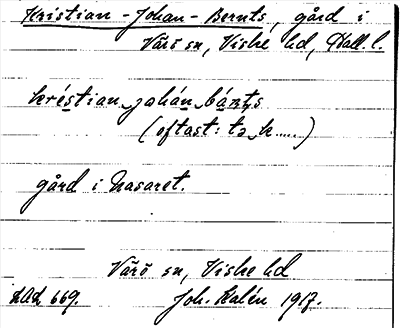 Kristian-Johan-Bernts, gård i
Värö sn, Viske hd, Hall. l.
kréstian-jahán-bánts
(oftast: tə k.....)
gård i Nasaret.
Värö sn, Viske hd
DAL 669. Joh. Kalén 1917.